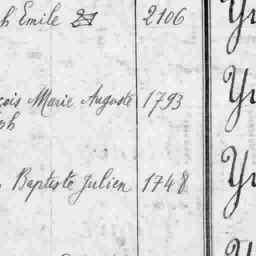 h Emile 21 2106
Yv
çois Marie Auguste 1793
ph
Yv
Baptiste Julien 1748
Yv